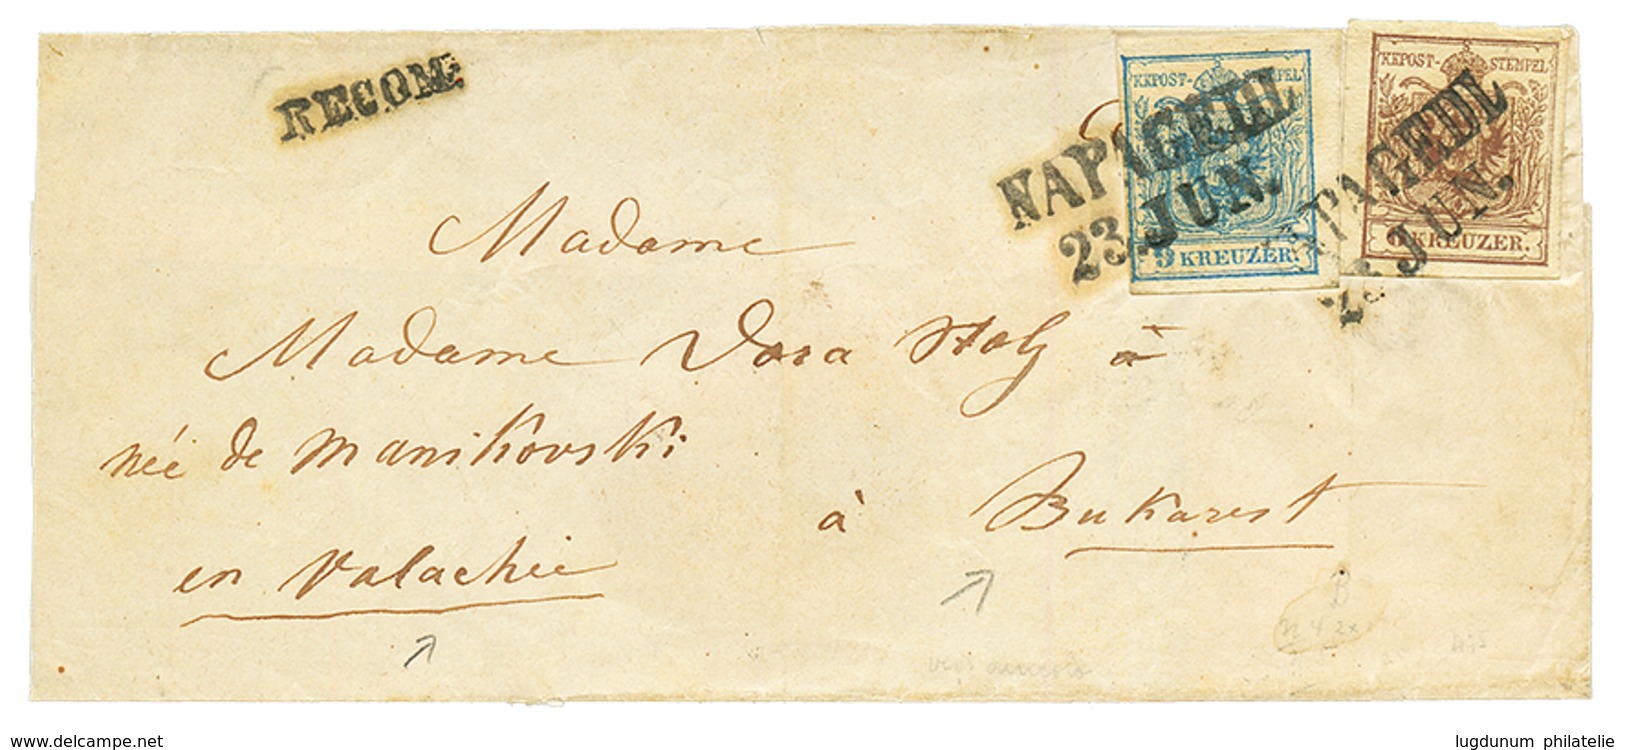 RECOM:
KKPOST-STEMPEL
9 KREUZER.
KKPOST-STEMPEL
6 KREUZER.
NAPAGEDL
23. JUN.
NAPAGEDL
23. JUN.
Madame
Madame Dora Stolz à
née de Manikovski
à Bukarest
en Valachie
B
www.delcampe.net
lugdunum philatelie